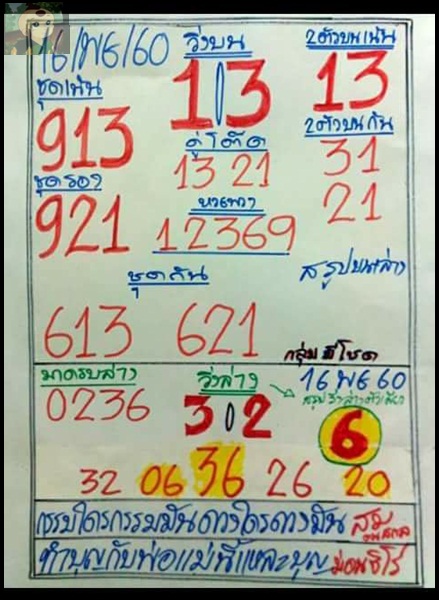 16/พ6/60 วิ่งบน 2ตัวบนเน้น
ชุดเน้น 1 3 13
913 คู่โต๊ด 2ตัวบนกัน
13 21 31
ชุดรอง 21
921 หาเพาว
12369
ชุดกัน สรุปบนล่าง
613 621
กลุ่ม มีโชค
มาครบล่าง วิ่งล่าง 16 พ6 60
0236 3 2
6
32 06 36 26 20
กรรมใครกรรมมันดวงใครดวงมัน
ทำบุญกับพ่อแม่นี่แหละบุญ